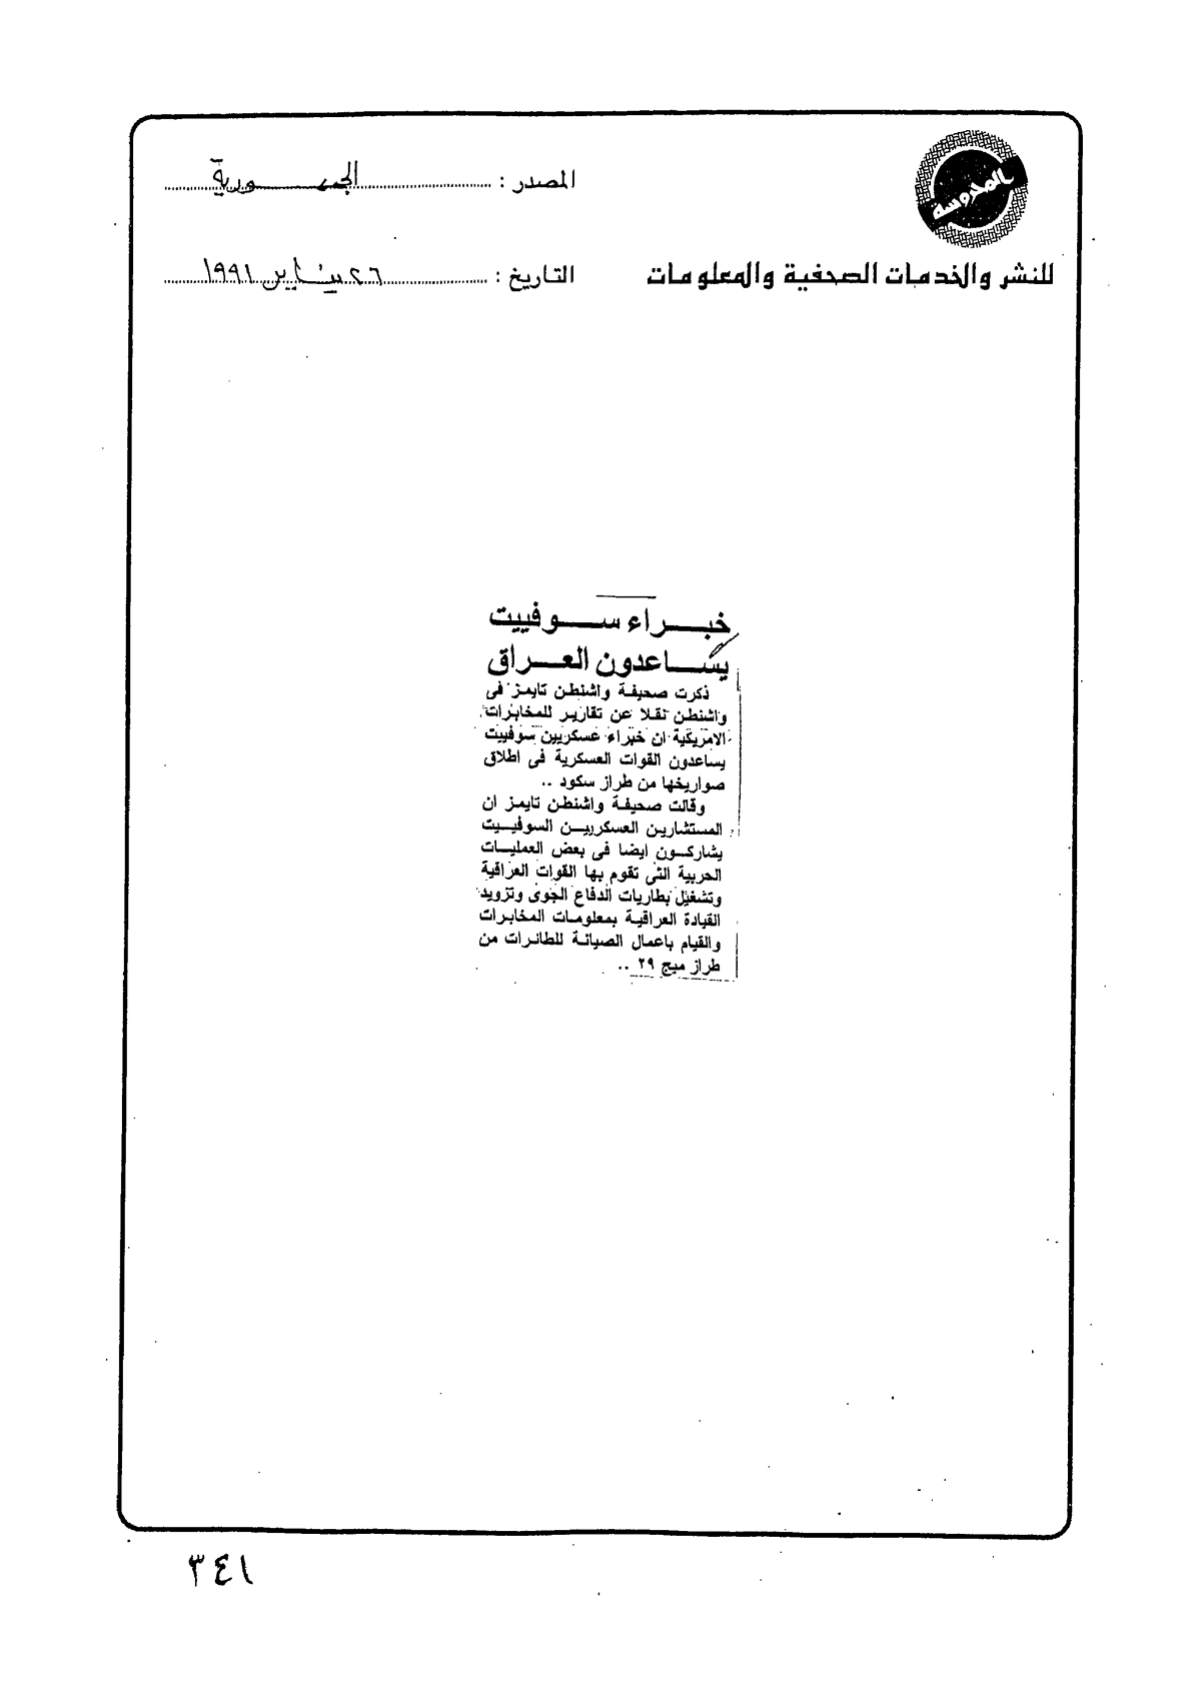 المحروسة
المصدر : الجمهورية
للنشر والخدمات الصحفية والمعلومات
التاريخ : ٢٦ يناير ١٩٩١
خبراء سوفييت
يساعدون العراق
ذكرت صحيفة واشنطن تايمز فى
واشنطن نقلا عن تقارير للمخابرات
الامريكية ان خبراء عسكريين سوفييت
يساعدون القوات العسكرية فى اطلاق
صواريخها من طراز سكود ..
وقالت صحيفة واشنطن تايمز ان
المستشارين العسكريين السوفييت
يشاركون ايضا فى بعض العمليات
الحربية التى تقوم بها القوات العراقية
وتشغيل بطاريات الدفاع الجوى وتزويد
القيادة العراقية بمعلومات المخابرات
والقيام باعمال الصيانة للطائرات من
طراز ميج ٢٩ ..
٣٤١